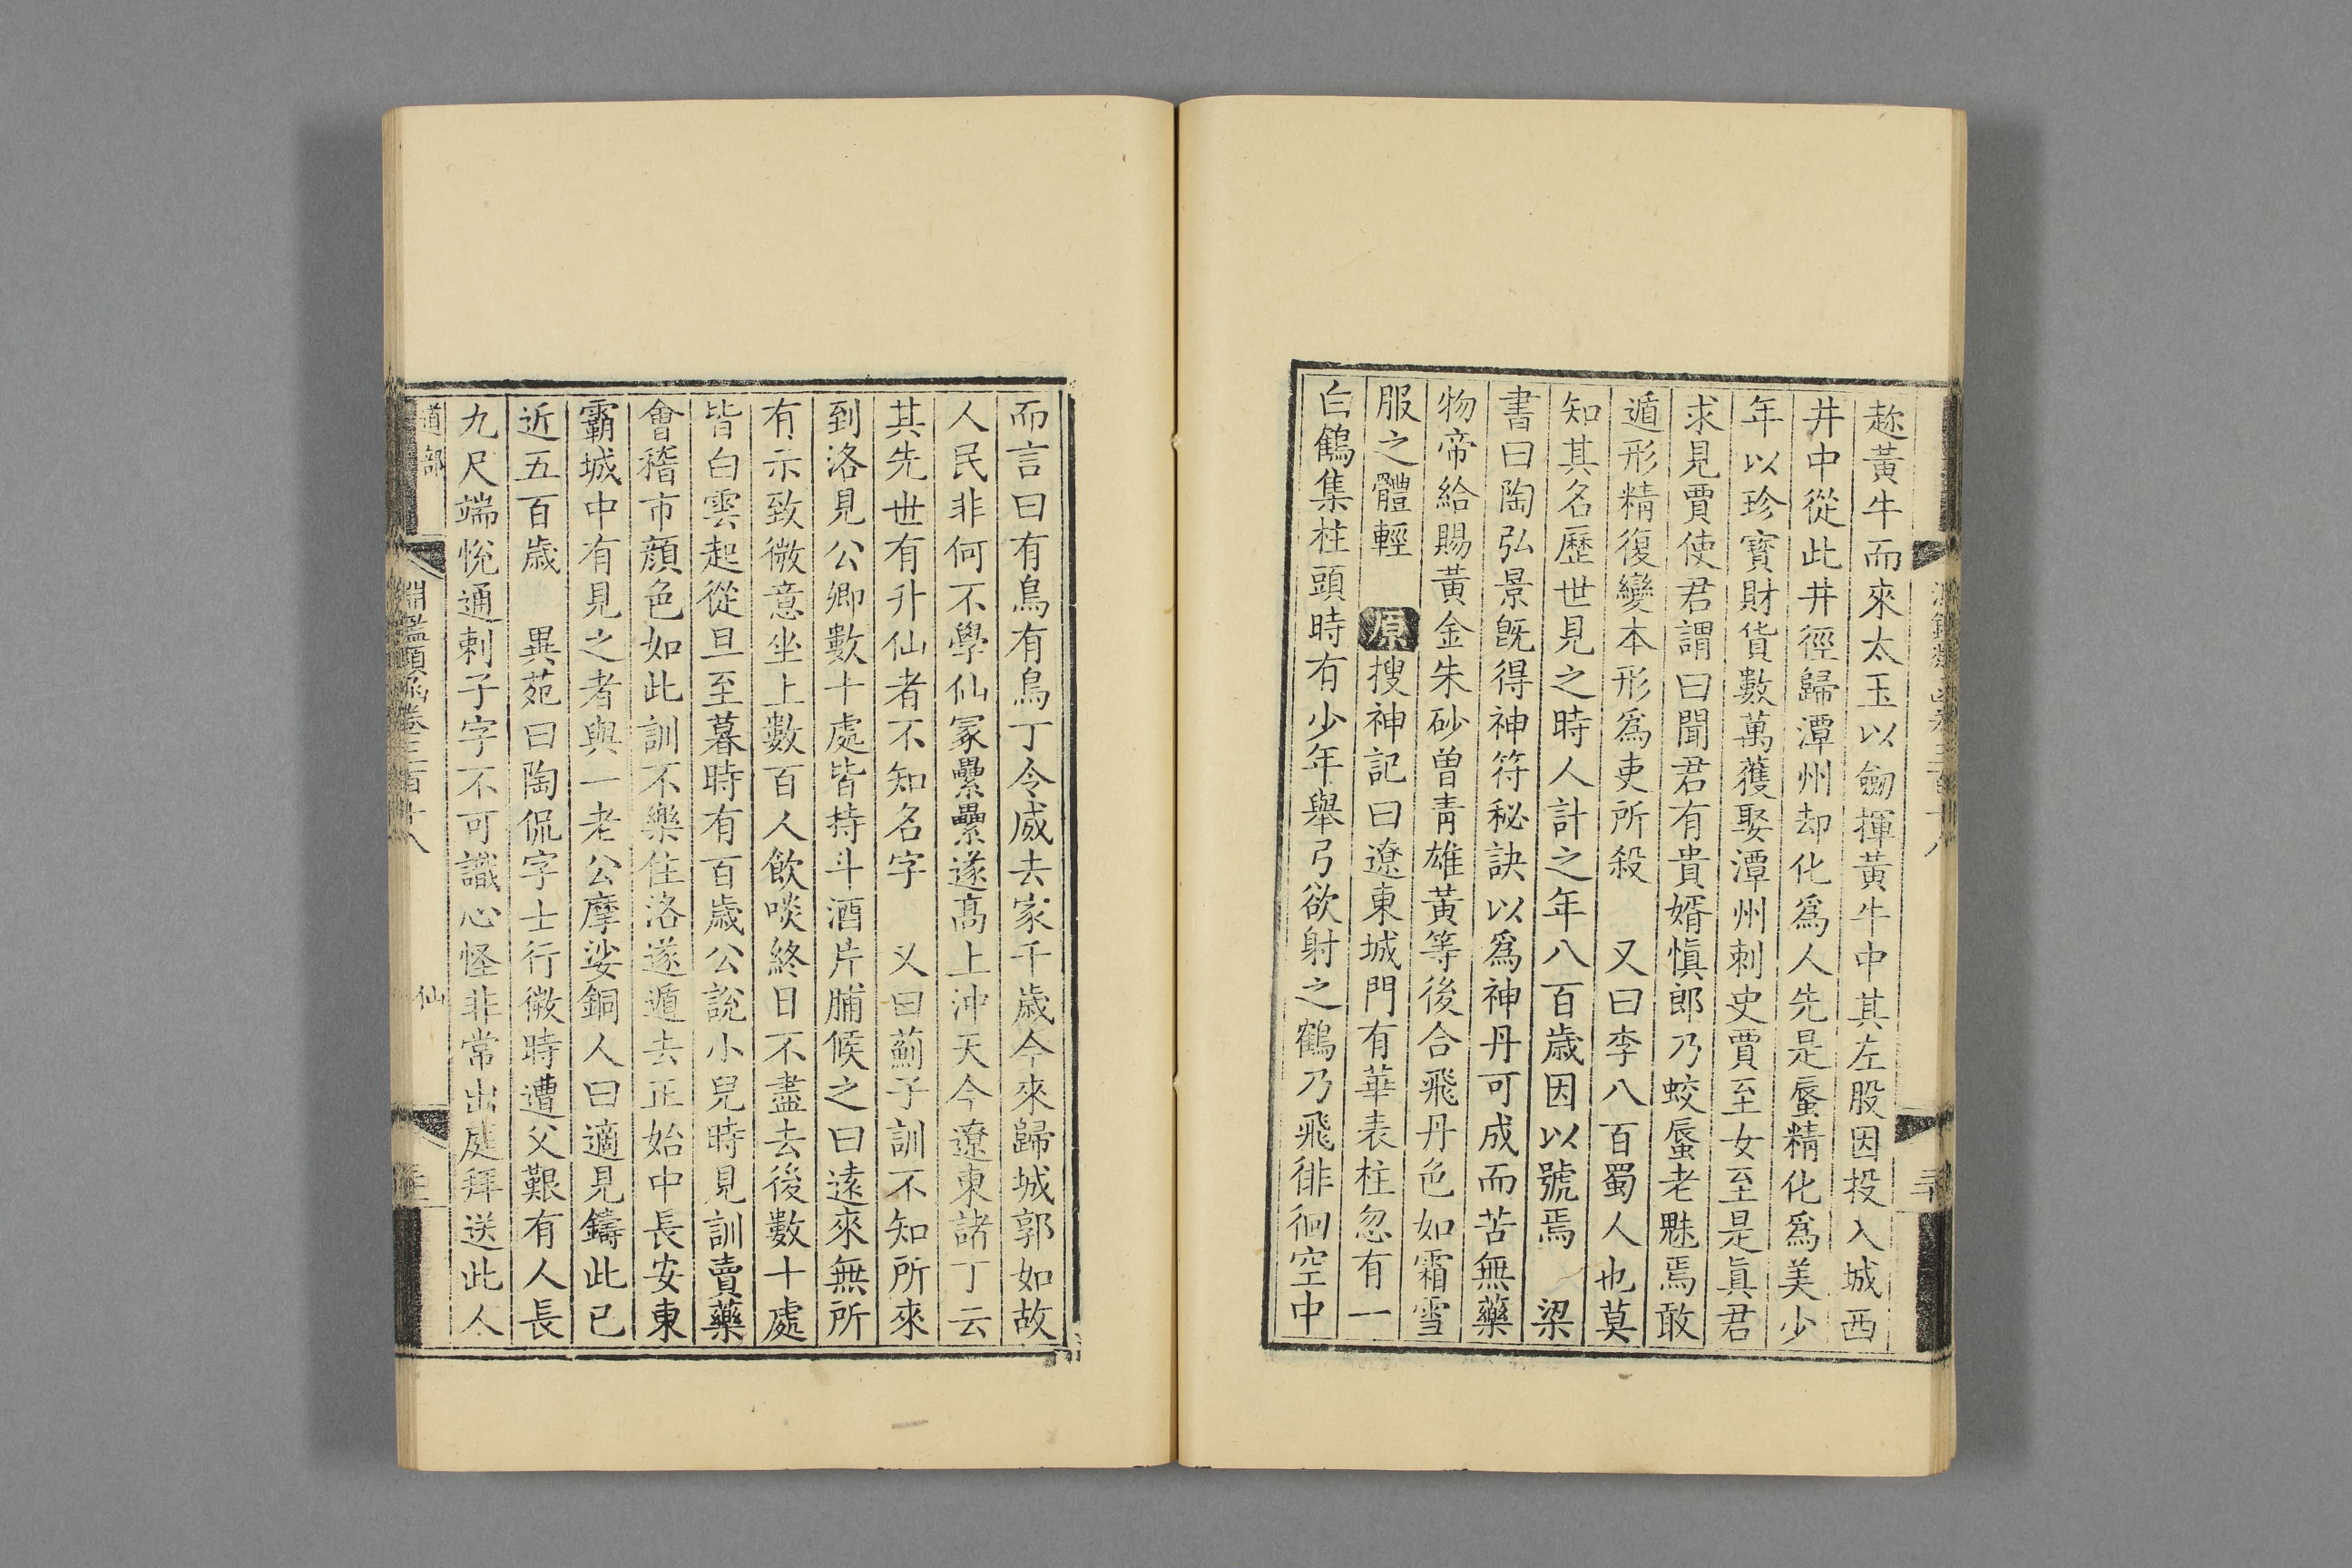 趂黃牛而來太玉以劒揮黃牛中其左股因投入城西
井中從此井徑歸潭州却化爲人先是蜃精化爲美少
年以珍寳財貨數萬獲娶潭州刺史賈至女至是眞君
求見賈使君謂曰聞君有貴婿愼郎乃蛟蜃老魅焉敢
遁形精復變本形爲吏所殺　又曰李八百蜀人也莫
知其名歷世見之時人計之年八百歳因以號焉　梁
書曰陶弘景旣得神符秘訣以爲神丹可成而苦無藥
物帝給賜黃金朱砂曾靑雄黃等後合飛丹色如霜雪
服之體輕　原搜神記曰遼東城門有華表柱忽有一
白鶴集柱頭時有少年舉弓欲射之鶴乃飛徘徊空中
而言曰有鳥有鳥丁令威去家千歳今來歸城郭如故
人民非何不學仙冢纍纍遂髙上沖天今遼東諸丁云
其先世有升仙者不知名字　又曰薊子訓不知所來
到洛見公卿數十處皆持斗酒片脯候之曰遠來無所
有示致微意坐上數百人飲啖終日不盡去後數十處
皆白雲起從旦至暮時有百歳公說小兒時見訓賣藥
會稽市顔色如此訓不樂住洛遂遁去正始中長安東
霸城中有見之者與一老公摩娑銅人曰適見鑄此已
近五百歳　異苑曰陶侃字士行微時遭父艱有人長
九尺端悅通刺子字不可識心怪非常出庭拜送此人
道部　淵鑑類函卷三百十八　仙